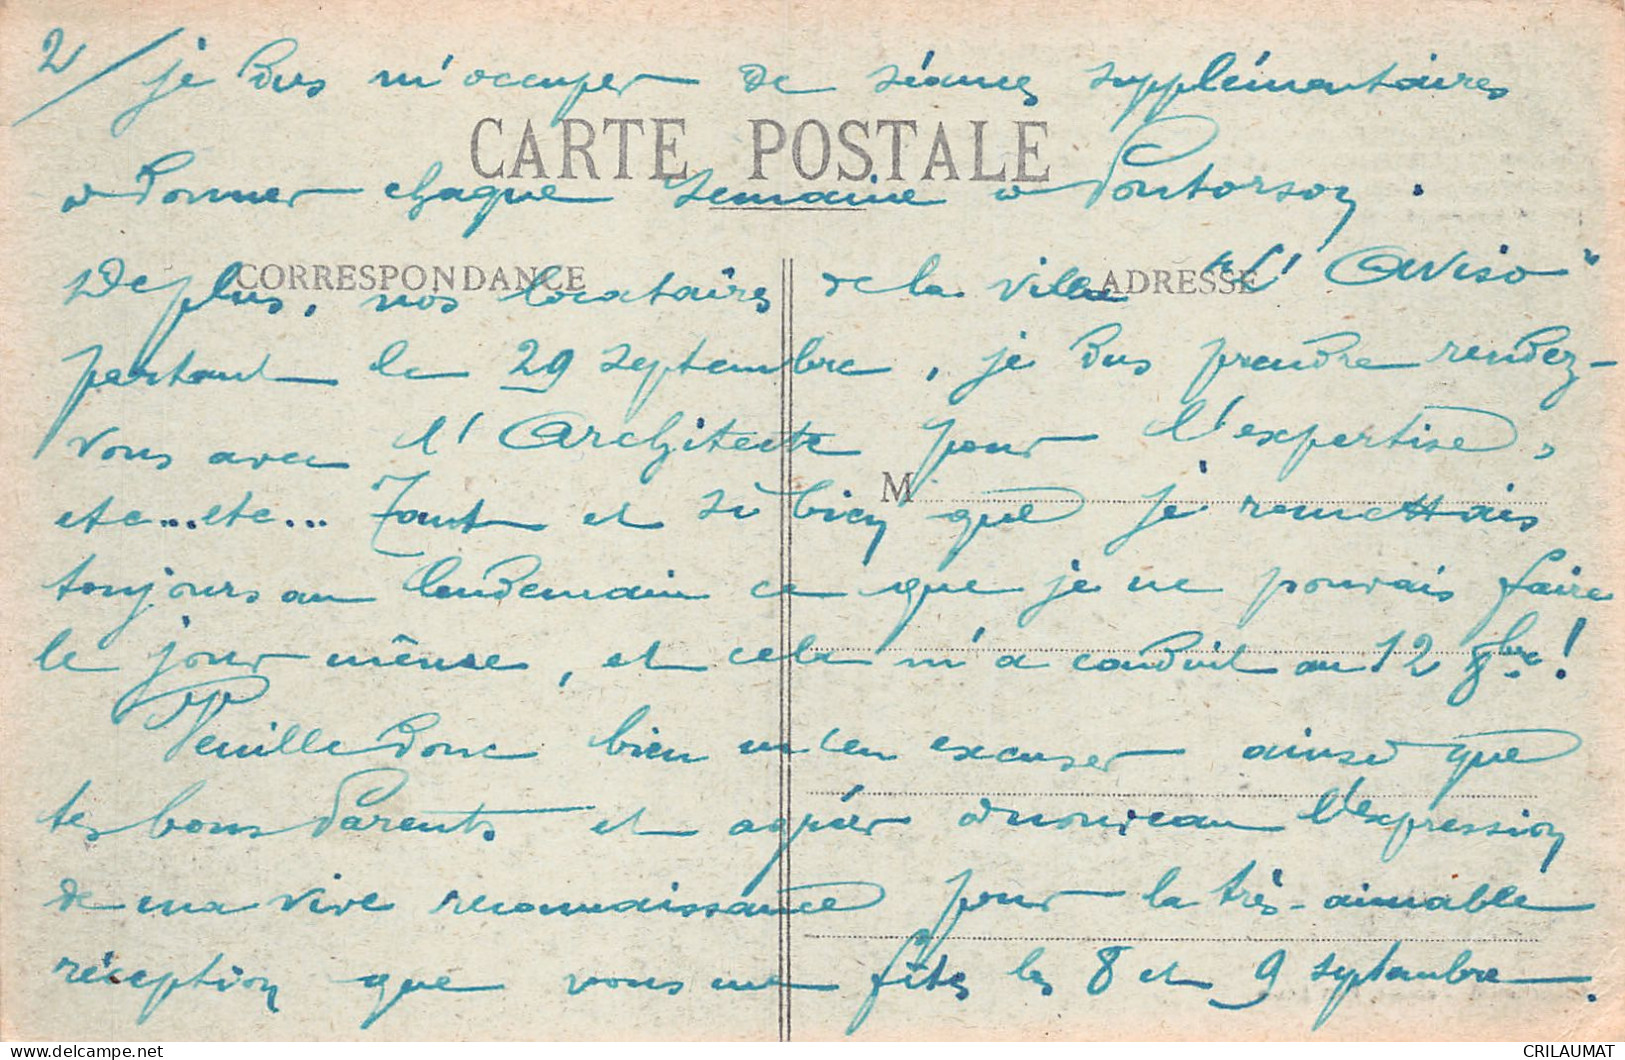 2/ je dus m'occuper de séances supplémentaires
CARTE POSTALE
à donner chaque semaine à Pontorson.
CORRESPONDANCE
ADRESSE
De plus, nos locataires de la villa "L'Aviso"
partant le 29 septembre, je dus prendre rendez-
vous avec l'Architecte pour l'expertise,
M
etc...etc... Tant et si bien que je remettais
toujours au lendemain ce que je ne pouvais faire
le jour même, et cela m'a conduit au 12 8bre!
Veuille donc bien m'en excuser ainsi que
tes bons Parents et agréer à nouveau l'expression
de ma vive reconnaissance pour la très-aimable
réception que vous me fîtes les 8 et 9 septembre.
CRILAUMAT